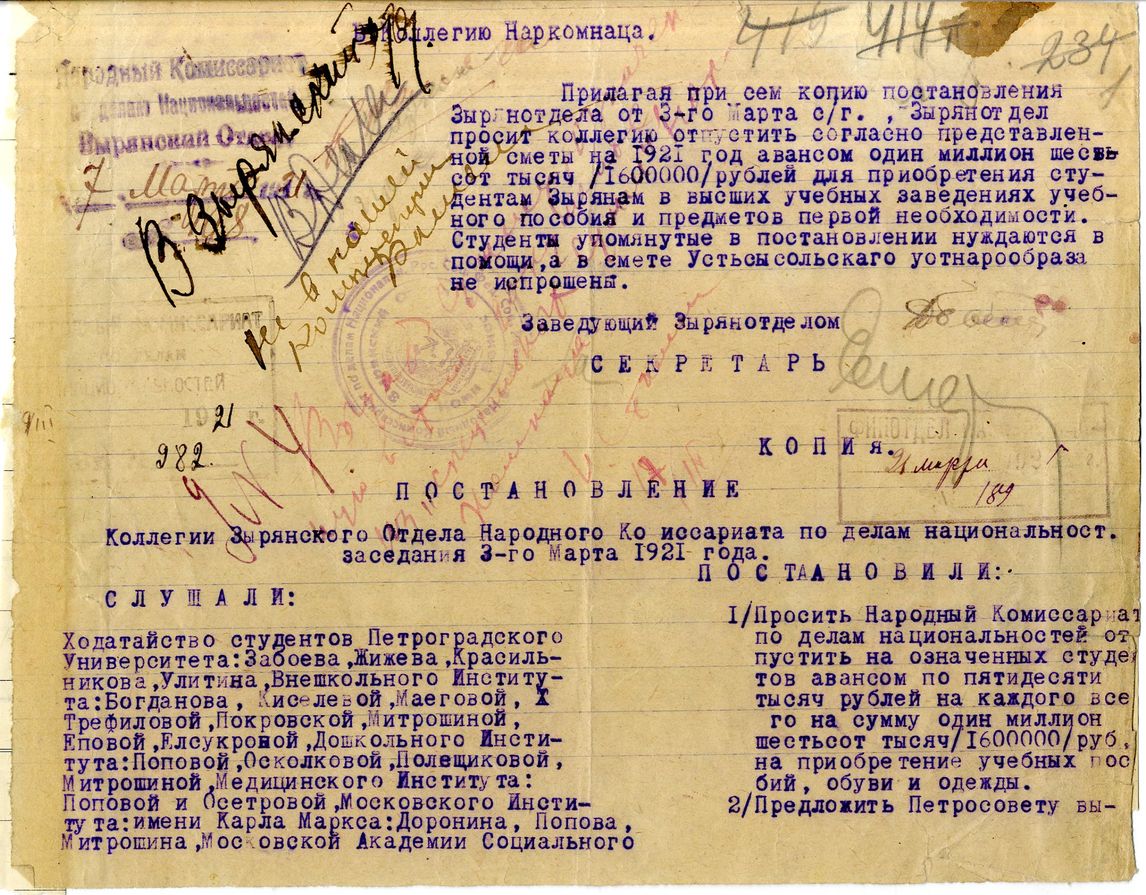 В Коллегию Наркомнаца.
415 414
234
1
Народный Комиссариат
по делам Национальностей
Зырянский Отдел
7 Марта 1921
В Зырянский отд
Прилагая при сем копию постановления
Зырянотдела от 3-го Марта с/г. , Зырянотдел
просит коллегию отпустить согласно представлен-
ной сметы на 1921 год авансом один миллион шесть-
сот тысяч /1600000/рублей для приобретения сту-
дентам Зырянам в высших учебных заведениях учеб-
ного пособия и предметов первой необходимости.
Студенты упомянутые в постановлении нуждаются в
помощи,а в смете Устьсысольскаго уотнарообраза
не испрошены.
не в нашей
компетенции
Заведующий Зырянотделом
СЕКРЕТАРЬ
21 г.
982
9/III
КОПИЯ.
ФИНОТДЕЛ
21 марта
189
ПОСТАНОВЛЕНИЕ
Коллегии Зырянского Отдела Народного Ко иссариата по делам национальност.
заседания 3-го Марта 1921 года.
СЛУШАЛИ:
Ходатайство студентов Петроградского
Университета:Забоева,Жижева,Красиль-
никова,Улитина,Внешкольного Институ-
та:Богданова, Киселевой,Маеговой, X
Трефиловой,Покровской,Митрошиной,
Еповой,Елсукровой,Дошкольного Инсти-
тута:Поповой,Осколковой,Полещиковой,
Митрошиной,Медицинского Института:
Поповой и Осетровой,Московского Инсти-
тута:имени Карла Маркса:Доронина, Попова,
Митрошина,Московской Академии Социального
ПОСТААНОВИЛИ:
1/Просить Народный Комиссариат
по делам национальностей от
пустить на означенных студе
тов авансом по пятидесяти
тысяч рублей на каждого все
го на сумму один миллион
шестьсот тысяч/1600000/руб,
на приобретение учебных пос
бий, обуви и одежды.
2/Предложить Петросовету вы-